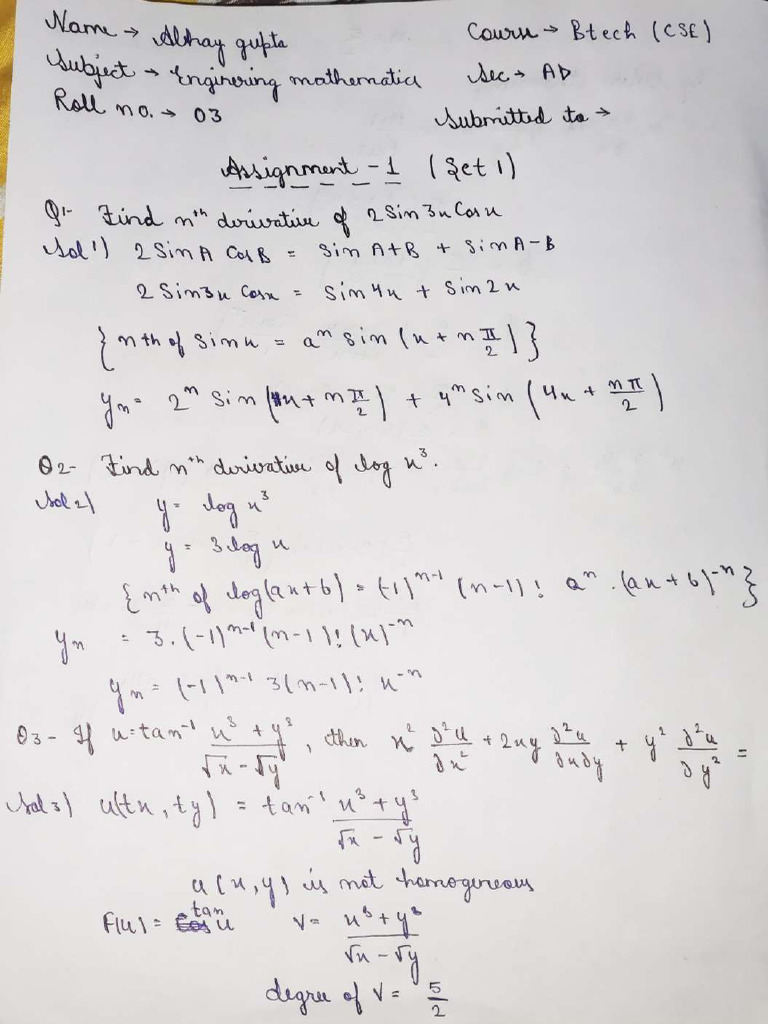 Name → Abhay gupta Course → Btech (CSE)
Subject → Enginering mathematics Sec → AD
Roll no. → 03 Submitted to →
Assignment - 1 (Set 1)
Q1- Find nth derivative of 2 Sin 3x Cos x
Sol 1) 2 Sin A Cos B = Sin A+B + Sin A-B
2 Sin3x Cosx = Sin 4x + Sin 2x
{ nth of Sin x = a^n Sin (x + n π/2) }
y_n = 2^n Sin (x + n π/2) + 4^n Sin (4x + nπ/2)
Q2- Find nth derivative of log x³.
Sol 2) y = log x³
y = 3 log x
{ nth of log(ax+b) = (-1)^n-1 (n-1)! a^n . (ax+b)^-n }
y_n = 3.(-1)^n-1 (n-1)! (x)^-n
y_n = (-1)^n-1 3(n-1)! x^-n
Q3- If u = tan⁻¹ x³ + y³ / √x - √y , then x² ∂²u/∂x² + 2xy ∂²u/∂x∂y + y² ∂²u/∂y² =
Sol 3) u(tx, ty) = tan⁻¹ x³ + y³ / √x - √y
u(x,y) is not homogineous
F(u) = tan u V = x³ + y³ / √x - √y
degree of V = 5/2